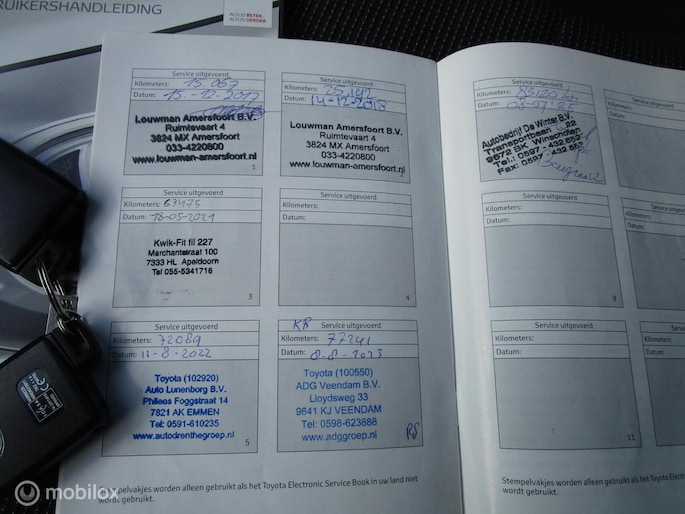 RUIKERSHANDLEIDING
ALTIJD BETER,
ALTIJD VERDER
Service uitgevoerd
Kilometers: 15.067
Datum: 15.-12-2017
Louwman Amersfoort B.V.
Ruimtevaart 4
3824 MX Amersfoort
033-4220800
www.louwman-amersfoort.nl
1
Service uitgevoerd
Kilometers: 25.142
Datum: 14-12-2018
Louwman Amersfoort B.V.
Ruimtevaart 4
3824 MX Amersfoort
033-4220800
www.louwman-amersfoort.nl
Service uitgevoerd
Kilometers: 63475
Datum: 18-05-2021
Kwik-Fit fil 227
Marchantstraat 100
7333 HL Apeldoorn
Tel 055-5341716
3
Service uitgevoerd
Kilometers:
Datum:
4
Service uitgevoerd
Kilometers: 72089
Datum: 11-8-2022
Toyota (102920)
Auto Lunenborg B.V.
Philees Foggstraat 14
7821 AK EMMEN
Tel: 0591-610235
www.autodrenthegroep.nl
5
Service uitgevoerd
Kilometers: 77241
Datum: 8-8-2023
Toyota (100550)
ADG Veendam B.V.
Lloydsweg 33
9641 KJ VEENDAM
Tel: 0598-623888
www.adggroep.nl
Stempelvakjes worden alleen gebruikt als het Toyota Electronic Service Book in uw land niet
wordt gebruikt.
Service uitgevoerd
Kilometers:
Datum:
Autobedrijf De Winter B.V.
Transportbaan 22
9672 BK Winschoten
Tel.: 0597 - 432 652
Fax: 0597 - 432 652
Service uitgevoerd
Kilometers:
Datum:
9
Service uitgevoerd
Kilometers:
Datum:
11
Stempelvakjes worden alleen gebruikt als het Toyota Electronic Serv
wordt gebruikt.
mobilox